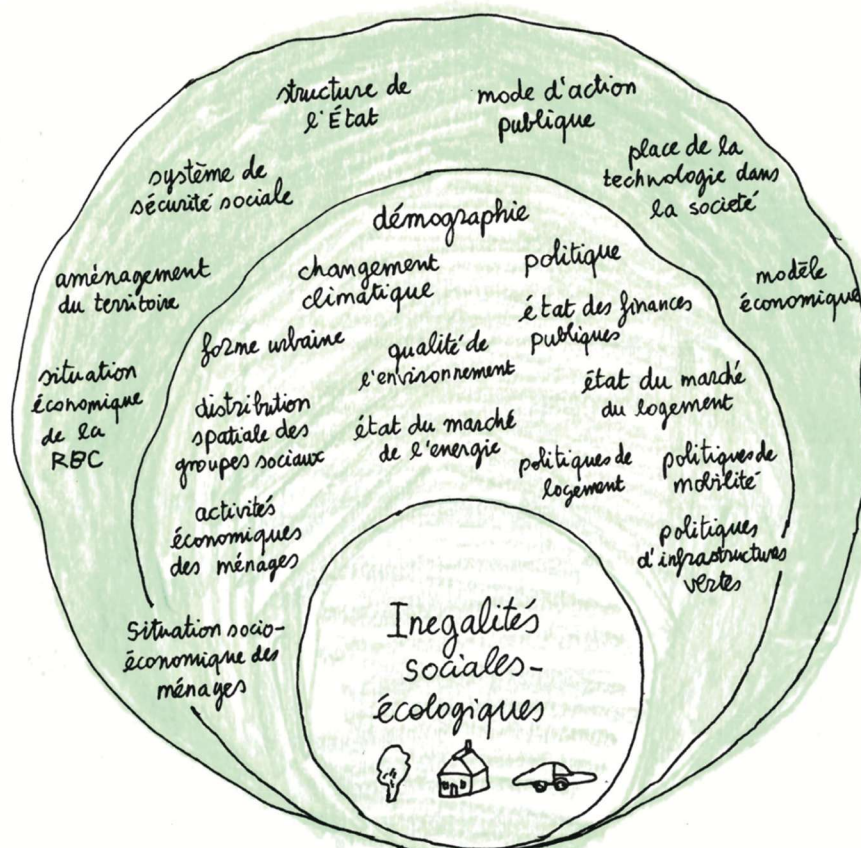 structure de
l'État
mode d'action
publique
place de la
technologie dans
la societé
système de
sécurité sociale
aménagement
du territoire
modèle
économique
situation
économique
de la
RBC
démographie
changement
climatique
politique
état des finances
publiques
forme urbaine
qualité de
l'environnement
état du marché
du logement
distribution
spatiale des
groupes sociaux
état du marché
de l'energie
politiques de
logement
politiques de
mobilité
activités
économiques
des ménages
politiques
d'infrastructures
vertes
Situation socio-
économique des
ménages
Inegalités
sociales-
écologiques